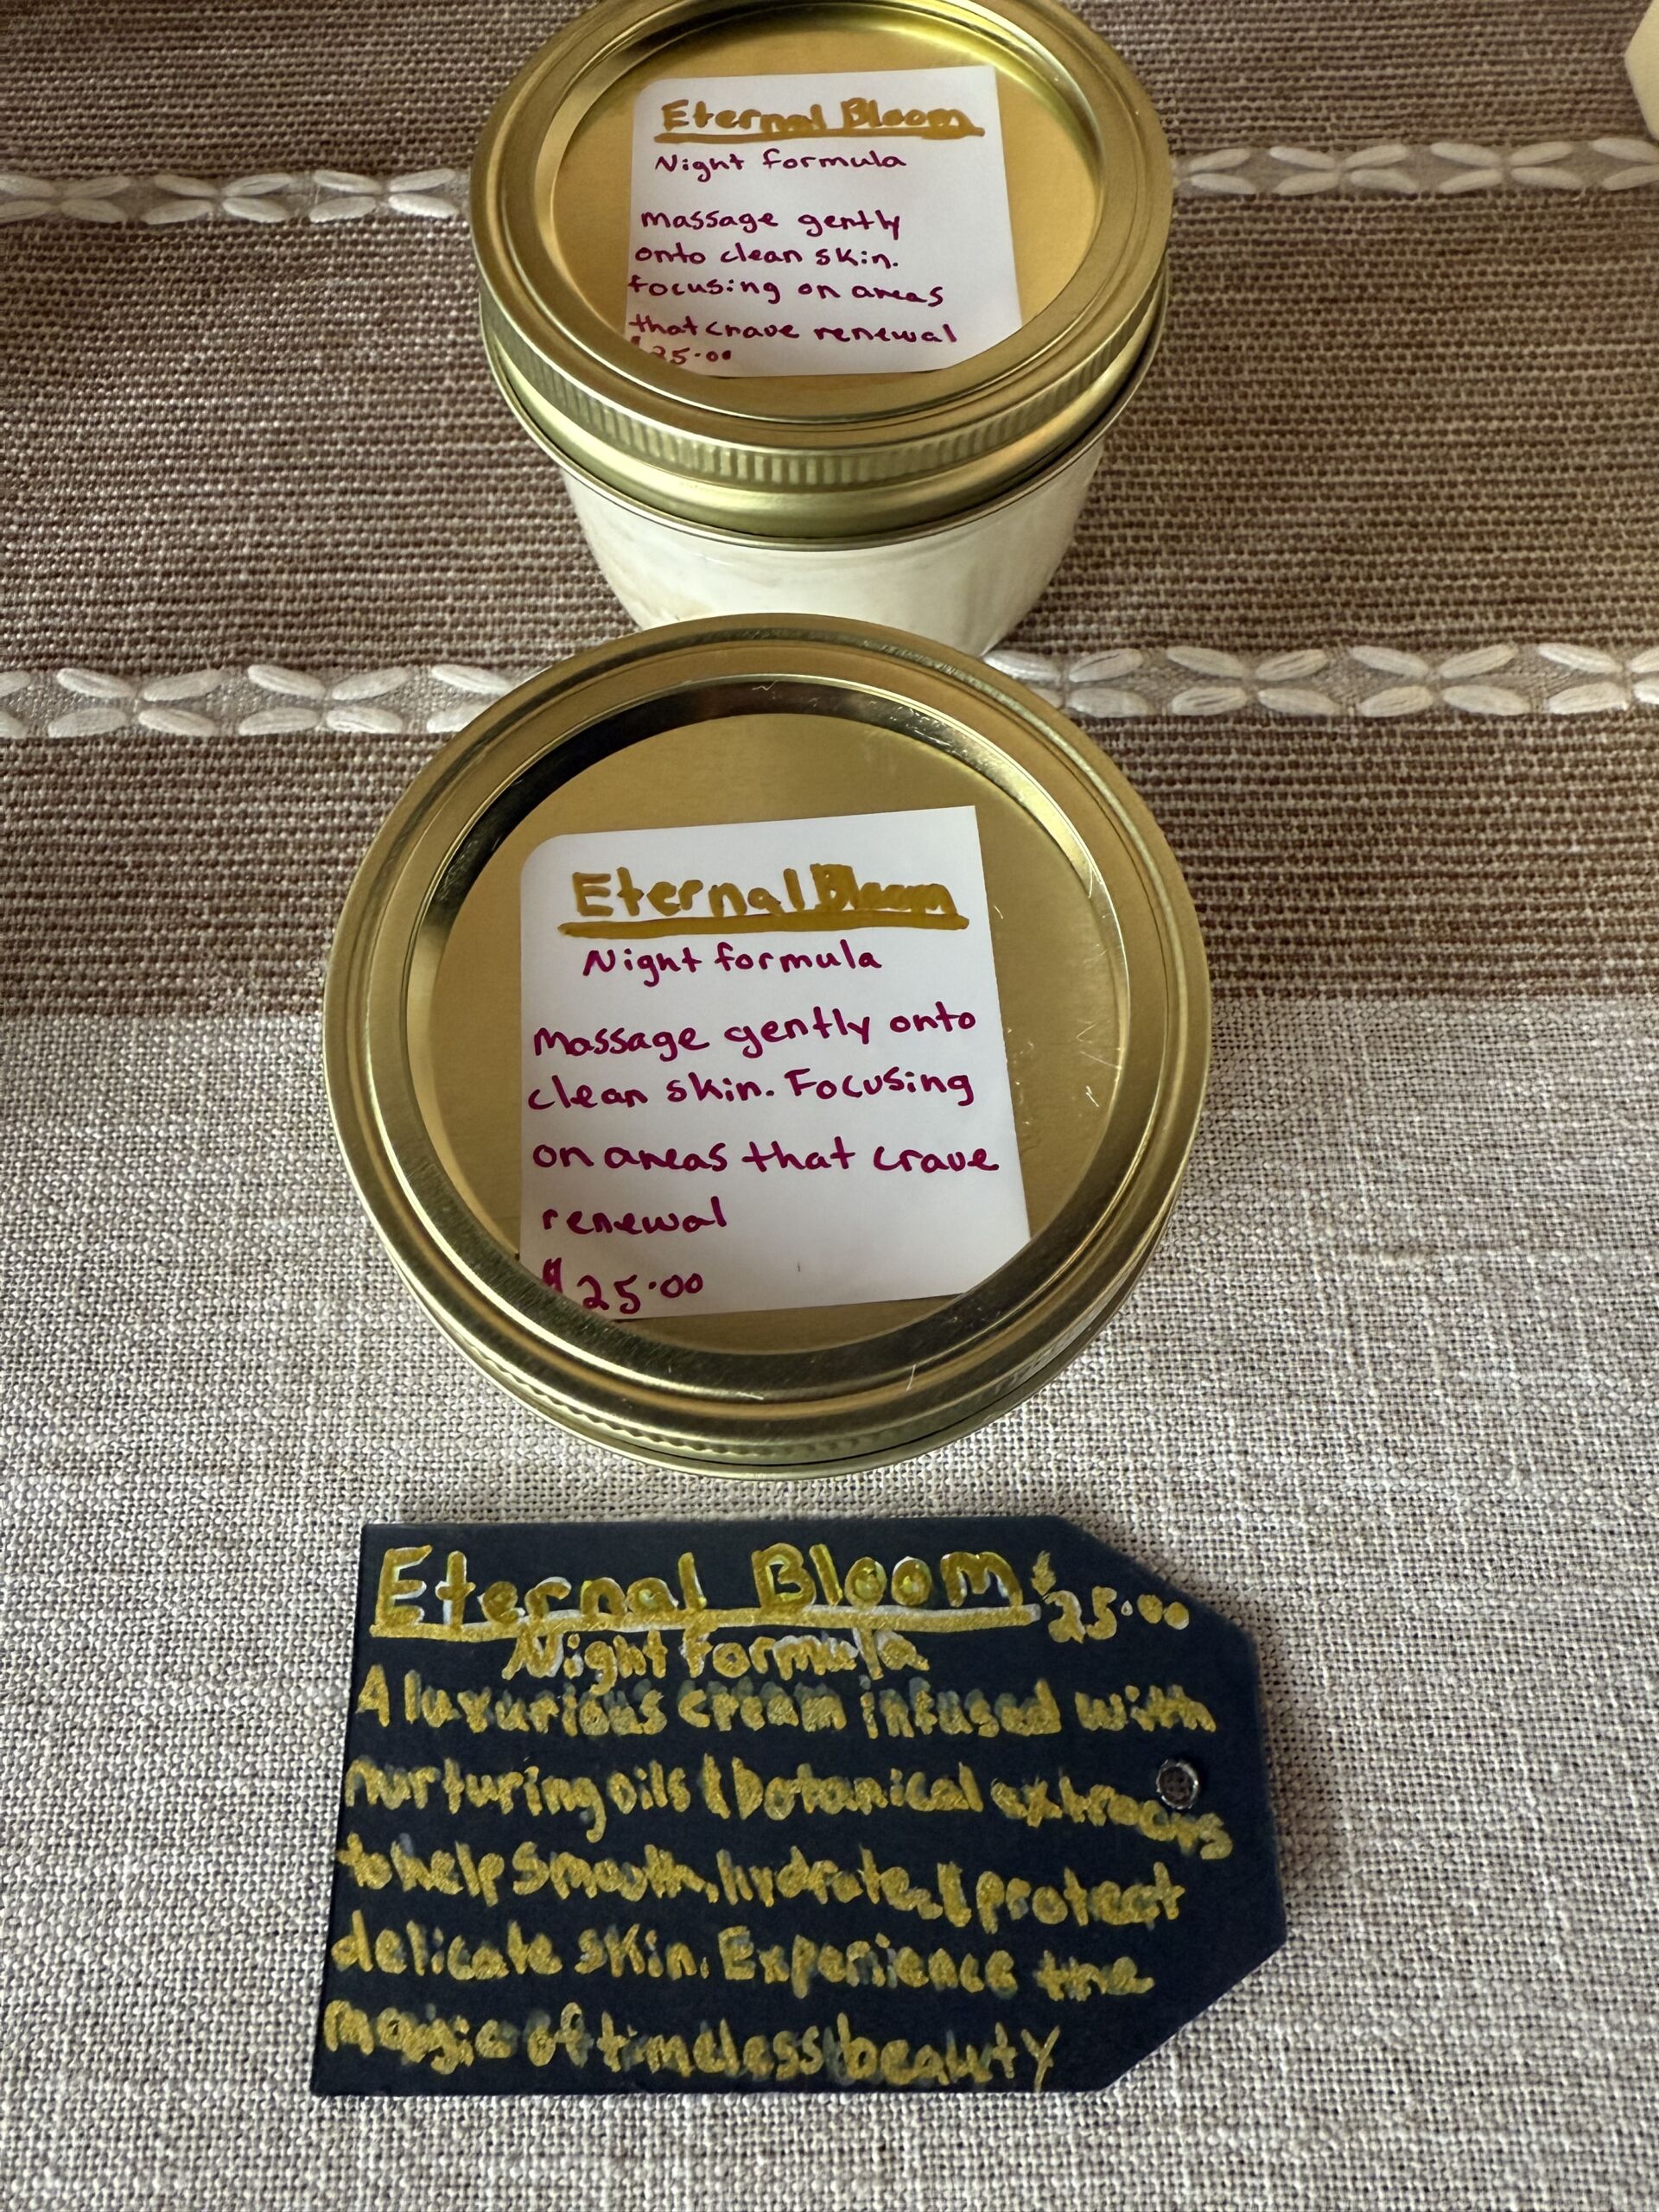 Eternal Bloom
Night formula
massage gently
onto clean skin.
focusing on areas
that crave renewal
$25.00
Eternal Bloom
Night formula
Massage gently onto
clean skin. Focusing
on areas that crave
renewal
$25.00
Eternal Bloom $25.00
Night Formula
A luxurious cream infused with
nurturing oils & botanical extracts
to help smooth, hydrate, & protect
delicate skin. Experience the
magic of timeless beauty